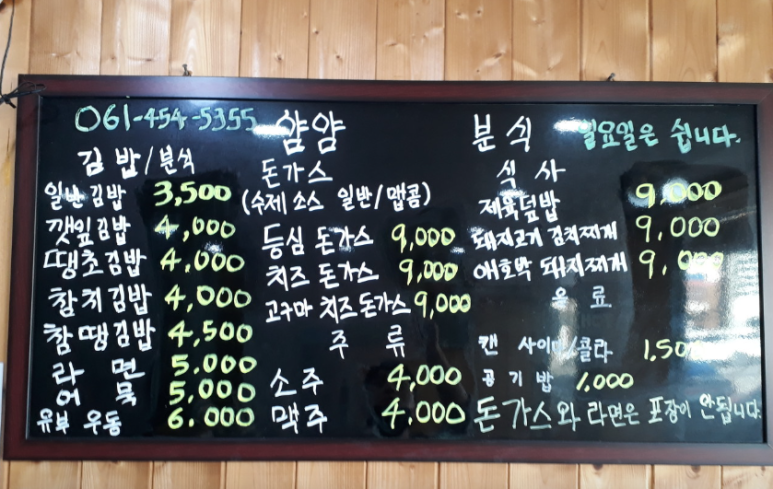 061-454-5355 얌얌 분식 일요일은 쉽니다.
김밥/분식
일반김밥 3,500
깻잎김밥 4,000
땡초김밥 4,000
참치김밥 4,000
참땡김밥 4,500
라면 5.000
어묵 5.000
유부 우동 6.000
돈가스
(수제 소스 일반/맵콤)
등심 돈가스 9,000
치즈 돈가스 9,000
고구마 치즈돈가스 9,000
주 류
소주 4,000
맥주 4.000
식 사
제육덮밥 9.000
돼지고기 김치찌개 9.000
애호박 돼지찌개 9.000
음 료
캔 사이다/콜라 1.500
공기밥 1.000
돈가스와 라면은 포장이 안됩니다.